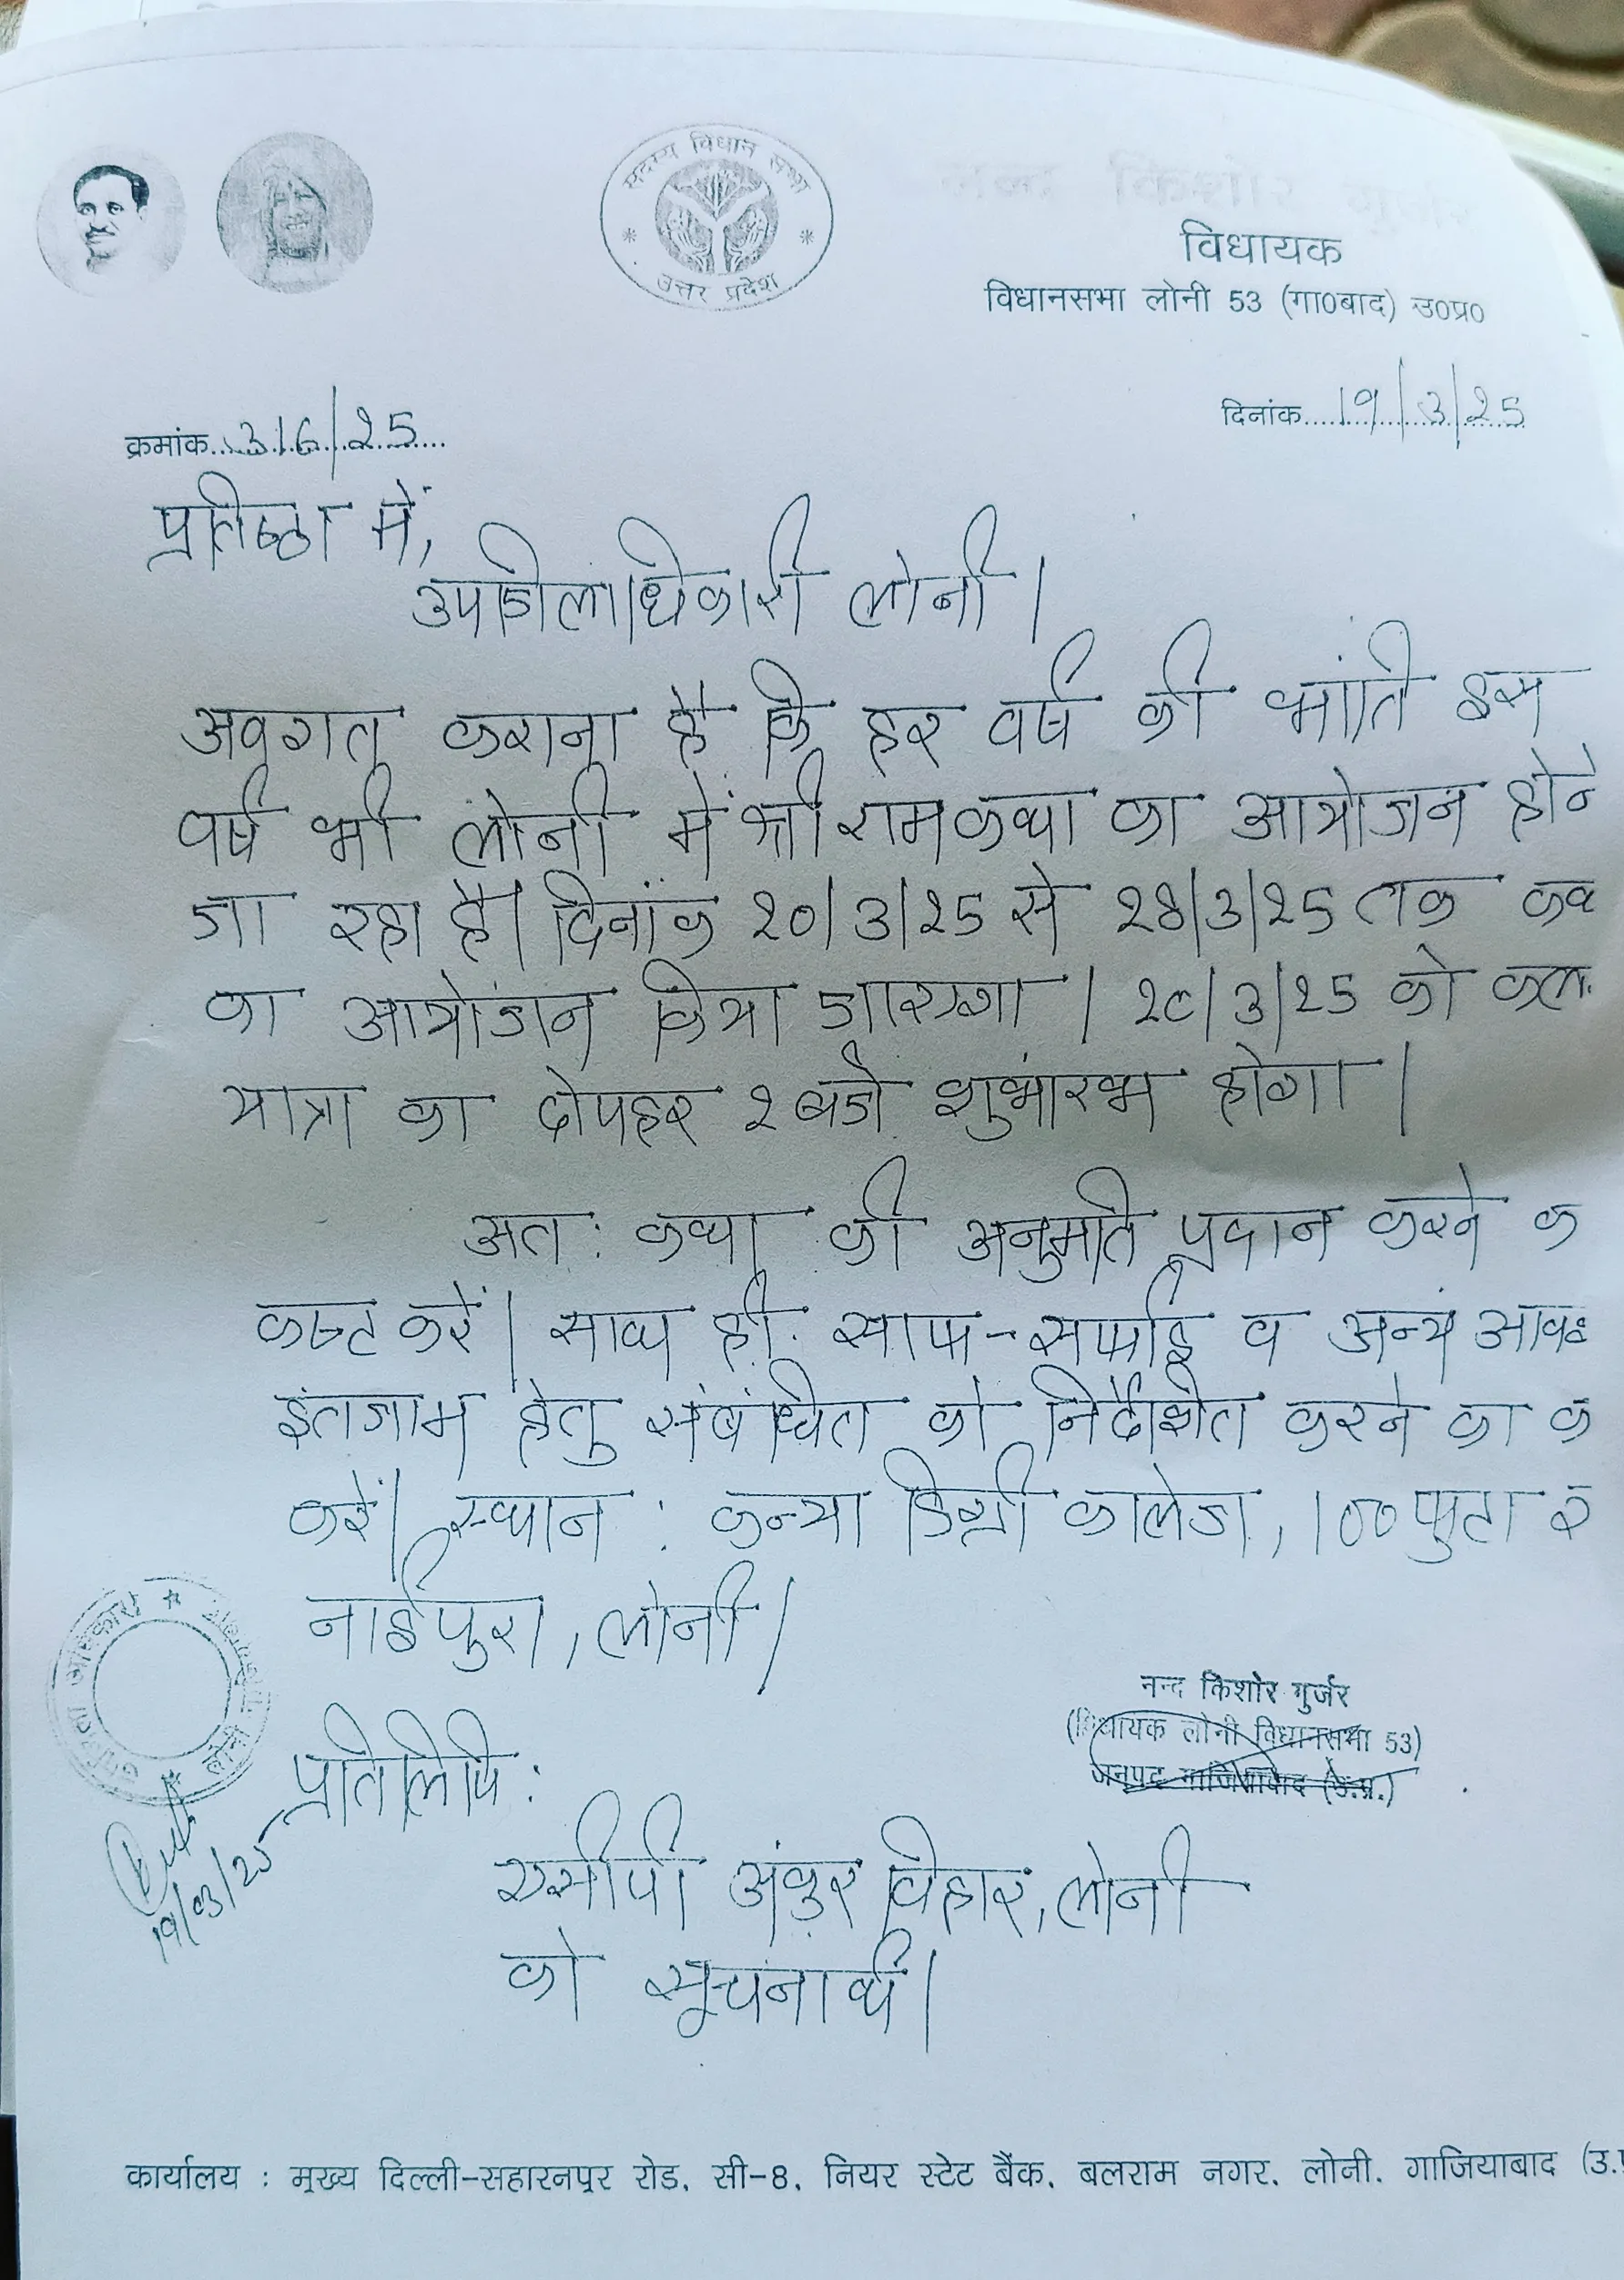 सदस्य विधान सभा
उत्तर प्रदेश
विधायक
विधानसभा लोनी 53 (गा0बाद) उ0प्र0
दिनांक....19/3/25
क्रमांक..316/25....
प्रतिष्ठा में,
उपजिलाधिकारी लोनी।
अवगत कराना है कि हर वर्ष की भांति इस
वर्ष भी लोनी में श्री रामकथा का आयोजन होने
जा रहा है। दिनांक 20/3/25 से 28/3/25 तक कथ
का आयोजन किया जाएगा। 20/3/25 को कल
यात्रा का दोपहर 2 बजे शुभारंभ होगा।
अत: कथा की अनुमति प्रदान करने क
कष्ट करें। साथ ही साफ-सफाई व अन्य आवश
इंतजाम हेतु संबंधित को निर्देशित करने का क
करें। स्थान: कन्या डिग्री कालेज, 100 फुटा र
नाईपुरा, लोनी।
नन्द किशोर गुर्जर
(विधायक लोनी विधानसभा 53)
जनपद गाजियाबाद (उ.प्र.)
प्रतिलिपि:
19/03/25
एसीपी अंकुर विहार, लोनी
को सूचनार्थ।
कार्यालय : मुख्य दिल्ली-सहारनपुर रोड, सी-8, नियर स्टेट बैंक, बलराम नगर, लोनी, गाजियाबाद (उ.